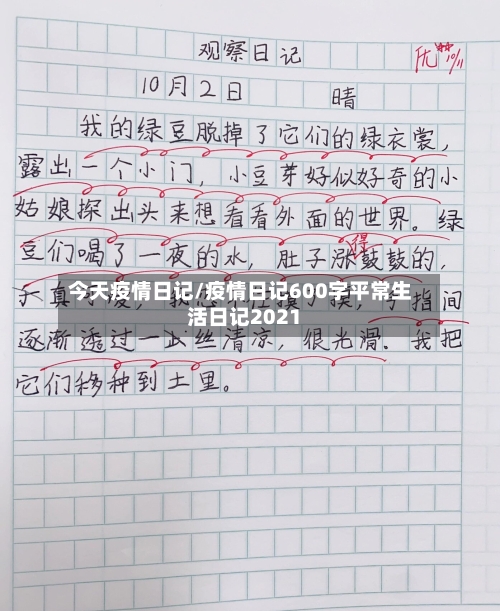 观察日记
优 10/11
10月2日 晴
我的绿豆脱掉了它们的绿衣裳，
露出一个小门，小豆芽好似好奇的小
姑娘探出头来想看看外面的世界。绿
豆们喝了一夜的水，肚子涨鼓鼓的，
得
今天疫情日记/疫情日记600字平常生
活日记2021
指间
逐渐透过一丝丝清凉，很光滑。我把
它们移种到土里。